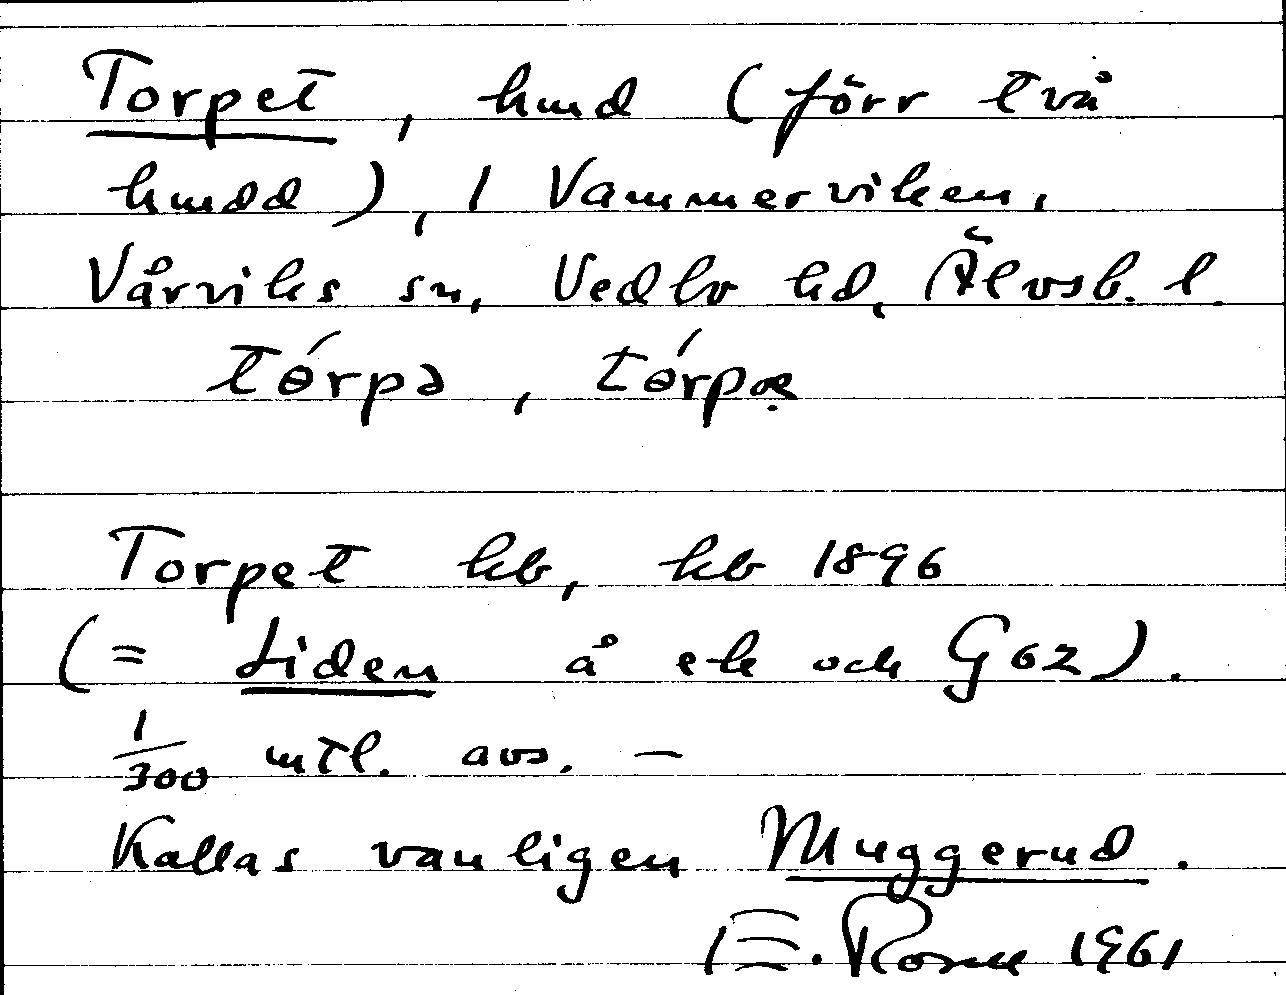 Torpet, hmd (förr två
hmdd), 1 Vammerviken,
Vårviks sn, Vedbo hd, Älvsb. l.
tórpə, tórpæ̣
Torpet kb, hb 1896
(= Liden å ek och G62).
1/300 mtl. avs. –
Kallas vanligen Muggerud.
E. Rosell 1961